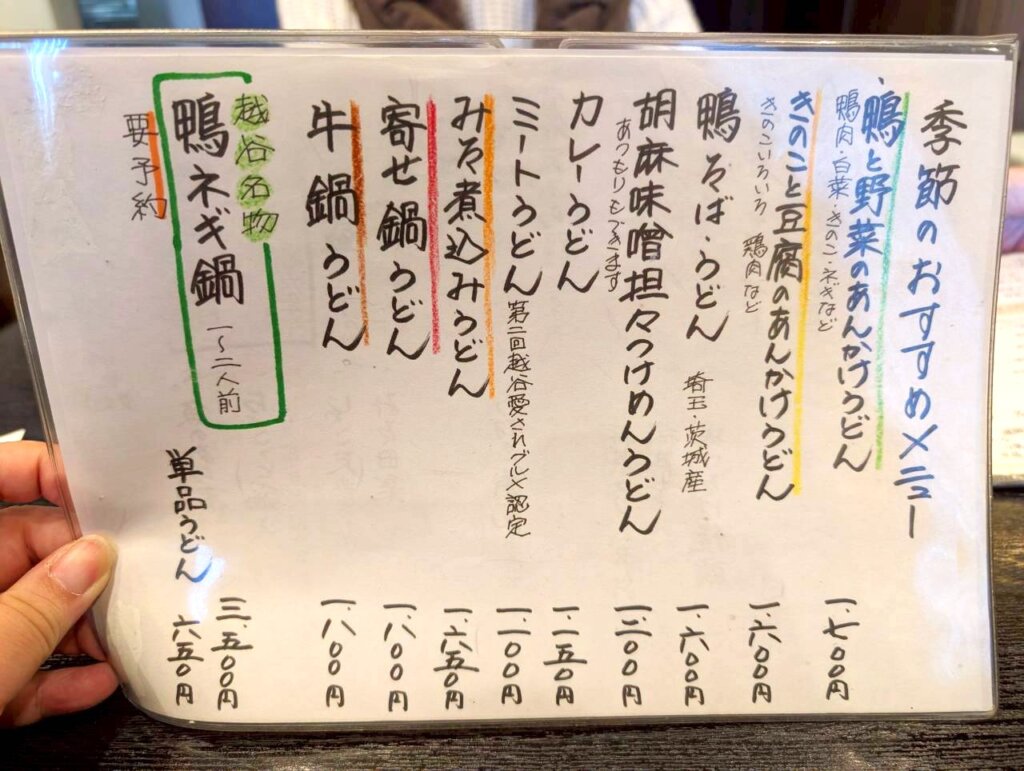 季節のおすすめメニュー
鴨と野菜のあんかけうどん 一、七〇〇円
鴨肉・白菜・きのこ・ネギなど
きのこと豆腐のあんかけうどん 一、六〇〇円
きのこいろいろ 鶏肉など
鴨そば・うどん 埼玉・茨城産 一、六〇〇円
胡麻味噌担々つけめんうどん 一、二〇〇円
あつもりもできます
カレーうどん 一、一五〇円
ミートうどん 第二回越谷愛されグルメ認定 一、一〇〇円
みそ煮込みうどん 一、六五〇円
寄せ鍋うどん 一、八〇〇円
牛鍋うどん 一、八〇〇円
越谷名物
鴨ネギ鍋 一〜二人前 三、五〇〇円
単品うどん 六五〇円
要予約